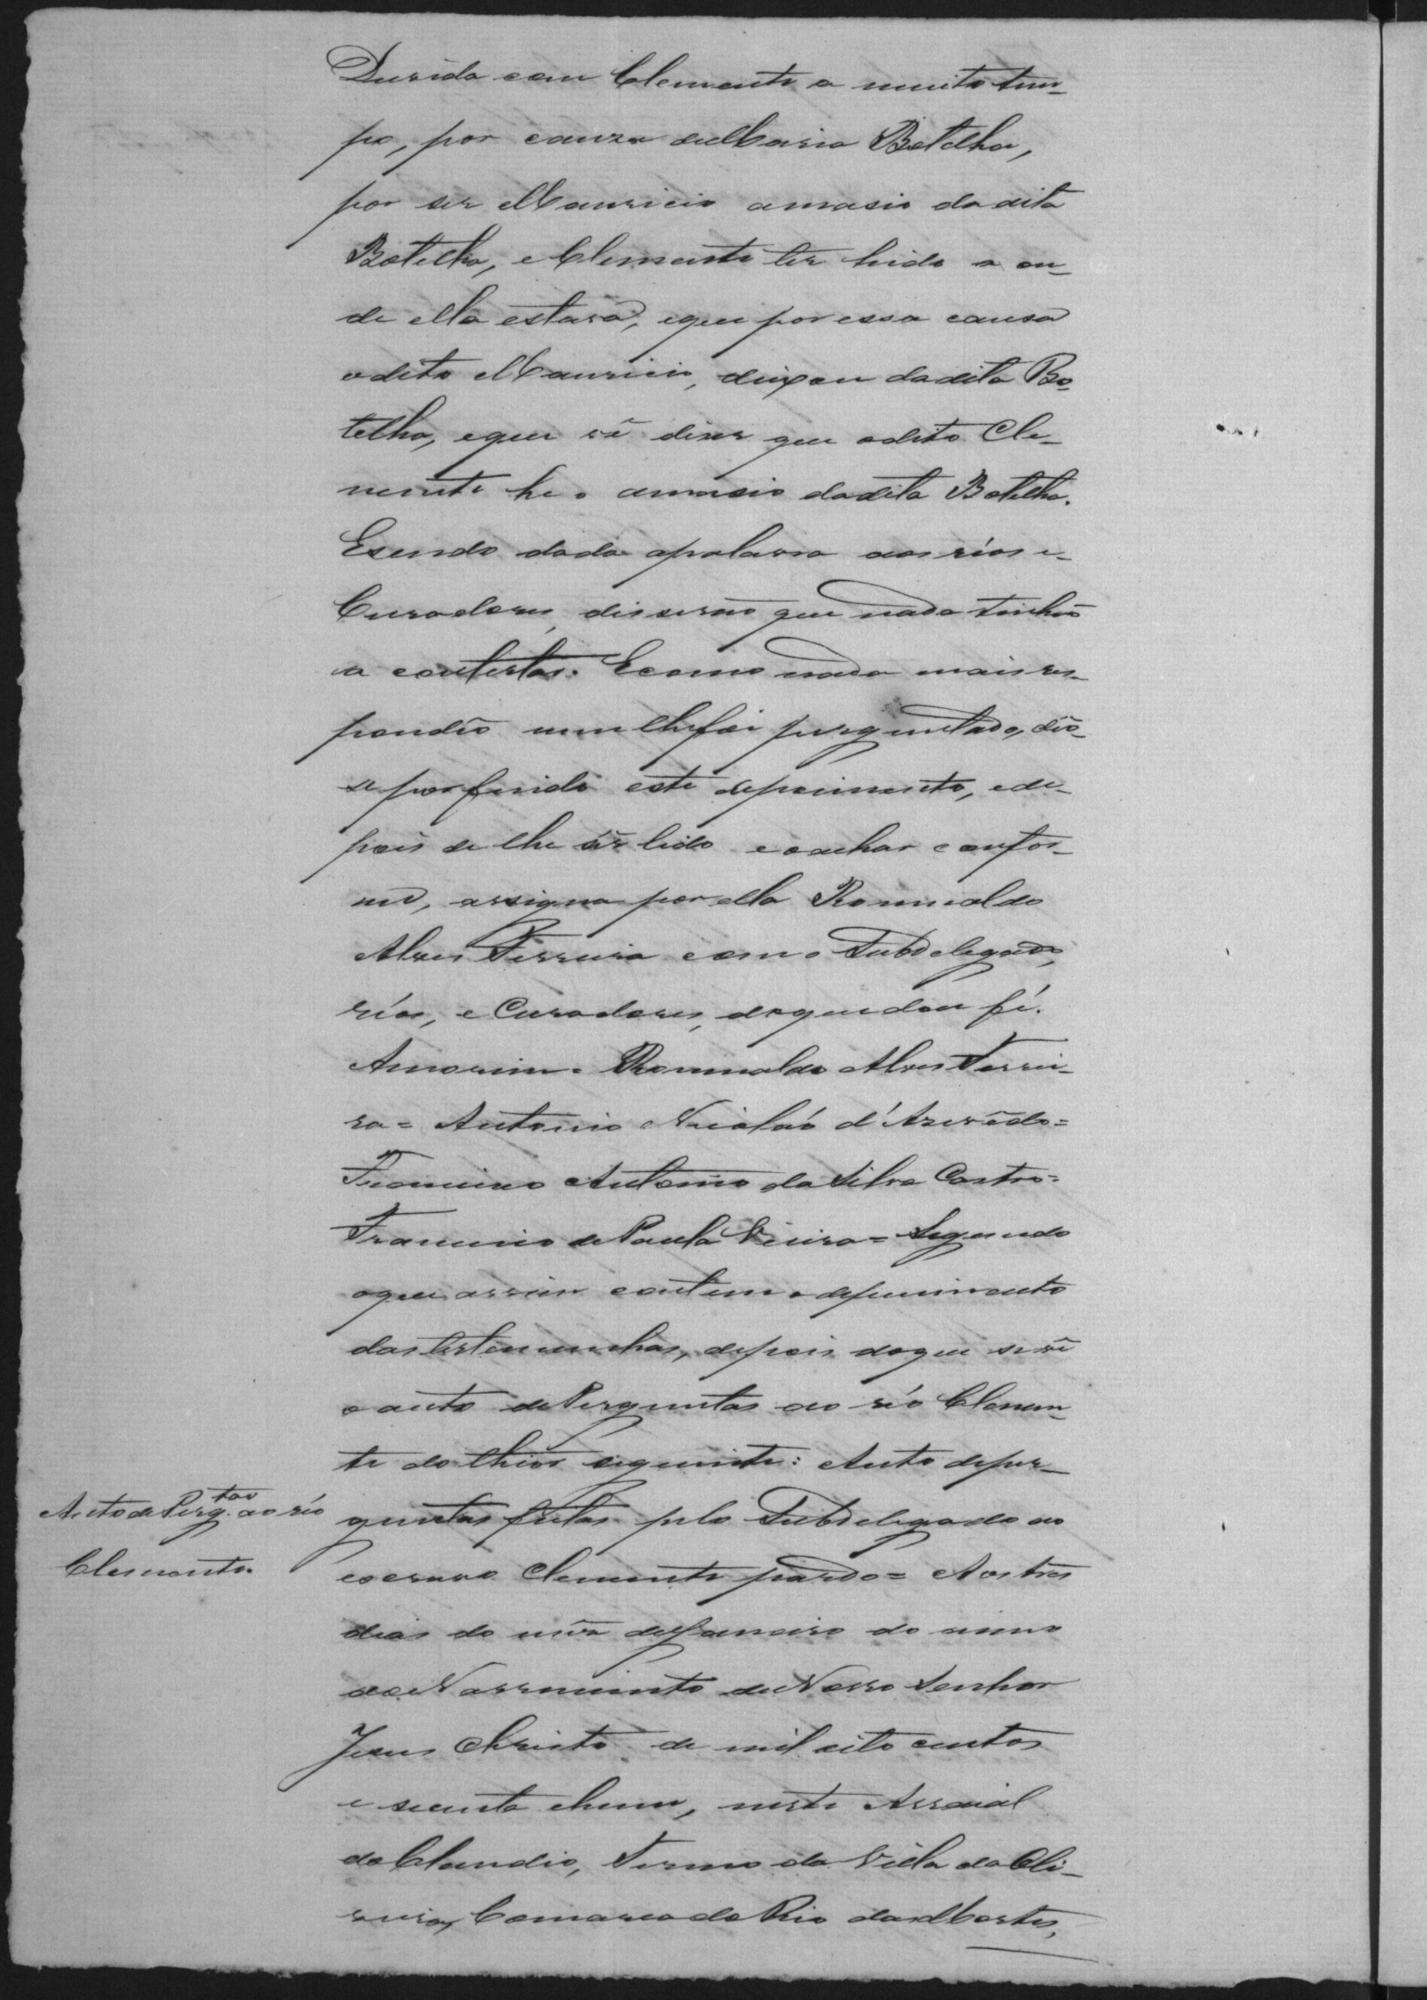 Duvida com Clemente a muito tem-
po, por cauza de Maria Botelha,
por ser Mauricio amasio da dita
Botelha, e Clemente ter hido a on-
de ella estava, e que por essa causa
o dito Mauricio, deixou da dita Bo-
telha, e que vê dizer que o dito Cle-
mente he o amasio da dita Botelha.
E sendo dada a palavra aos réos e
Curadores, disserão que nada tinhão
a contestar. E como nada mais res-
pondêo nem lhe foi perguntado, dêo-
se por findo este depoimento, e de-
pois de lhe sêr lido e o achar confor-
me, assigna por ella Romualdo
Alves Ferreira com o Subdelegado,
réos, e Curadores, do que dou fé.
Amorim. Romualdo Alves Ferrei-
ra = Antonio Nicoláo d'Azevêdo =
Francisco Antonio da Silva Castro =
Francisco de Paula Vieira = Segundo
o que assim contem o depoimento
das testemunhas, depois do que se vê
o auto de Perguntas ao réo Clemen-
te do theor seguinte: Auto de per-
Auto de Perg.tas ao réo
Clemente.
guntas feitas pelo Subdelegado ao
escravo Clemente pardo = Aos três
dias do mêz de Janeiro do anno
do Nassimento de Nosso Senhor
Jesus Christo de mil oito centos
e secenta e hum, neste Arraial
do Claudio, Termo da Villa da Oli-
veira, Comarca do Rio das Mortes,